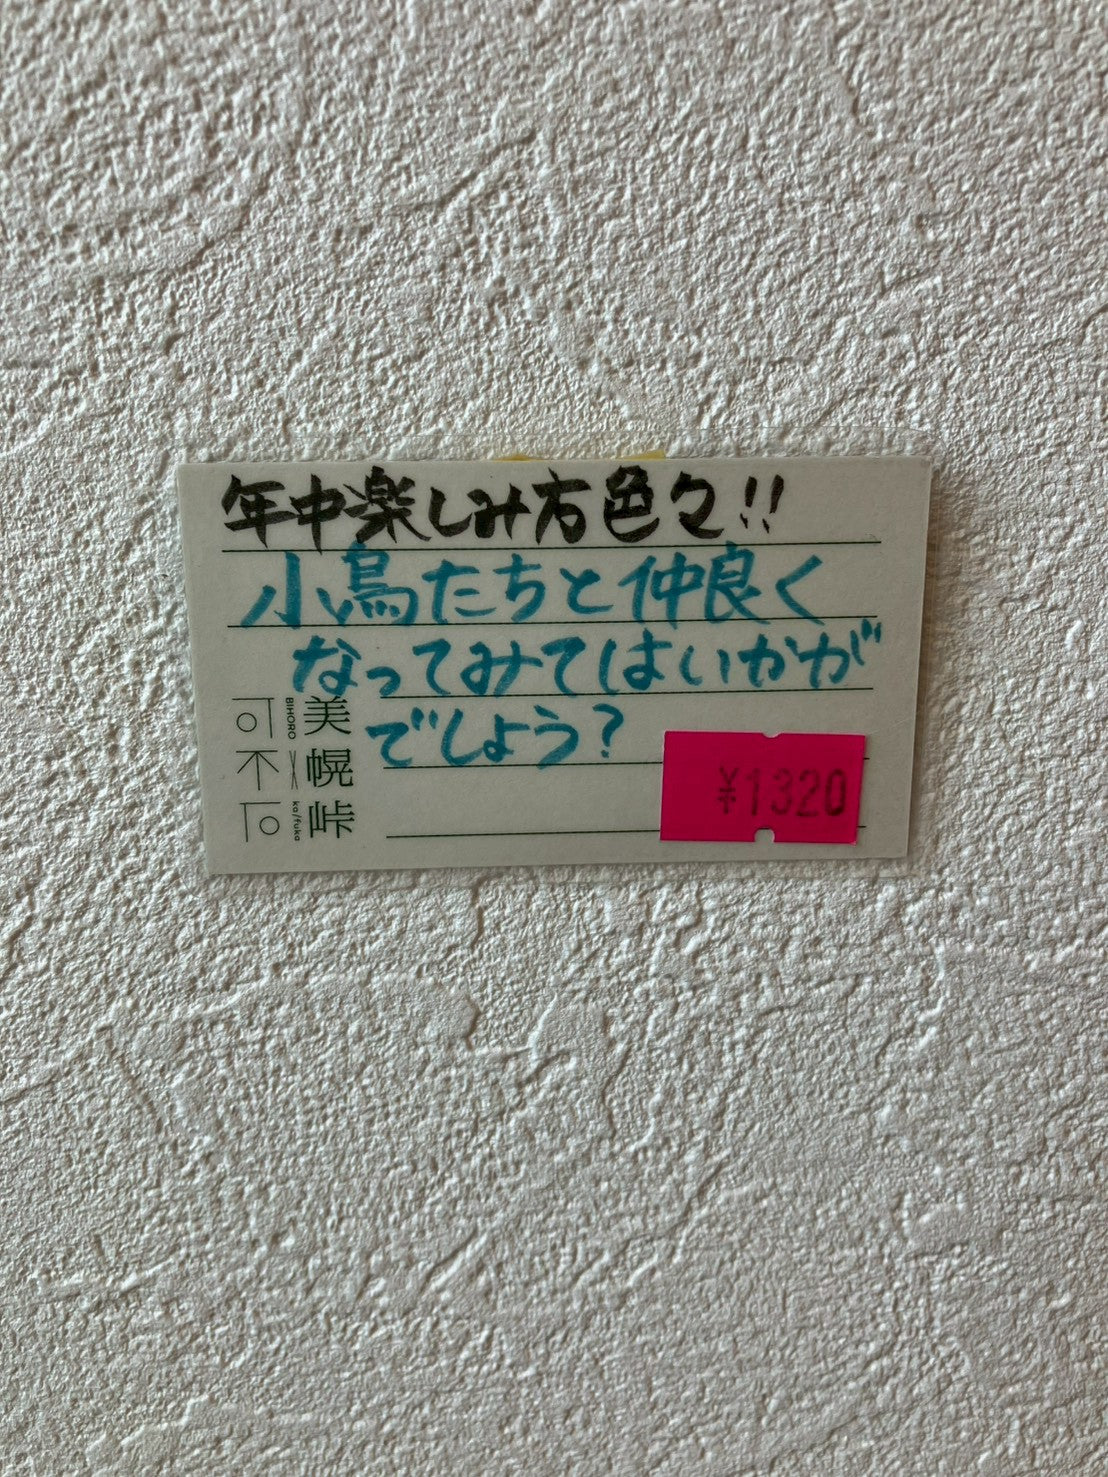 年中楽しみ方色々!!
小鳥たちと仲良く
なってみてはいかが
でしょう?
美幌峠
BIHORO
ka/fuka
可不可
¥1320